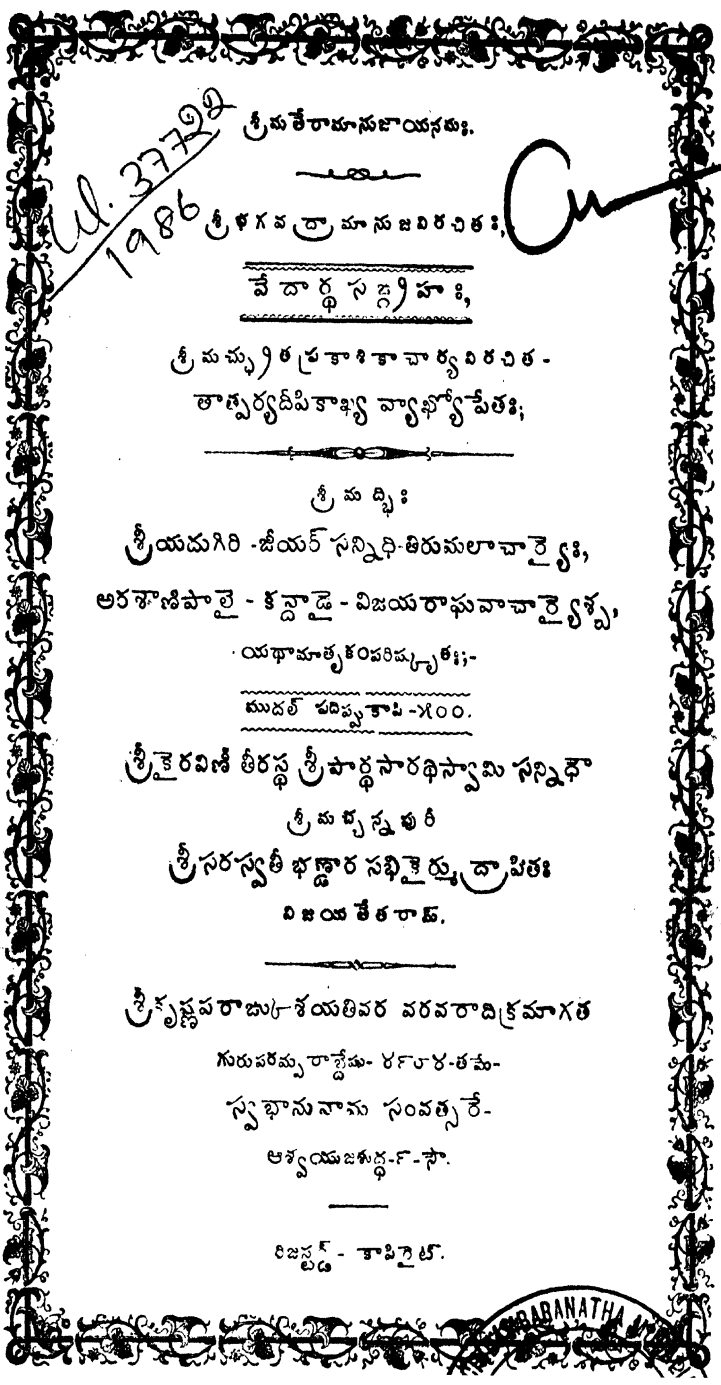 శ్రీమతేరామానుజాయనమః.
37722
1986
శ్రీభగవద్రామానుజవిరచితః,
వేదార్థసఙ్గ్రహః,
శ్రీమచ్ఛ్రుతప్రకాశికాచార్యవిరచిత-
తాత్పర్యదీపికాఖ్య వ్యాఖ్యోపేతః;
శ్రీమద్భిః
శ్రీయదుగిరి-జీయర్ సన్నిధి-తిరుమలాచార్యైః,
అరశాణిపాలై - కన్దాడై - విజయరాఘవాచార్యైశ్చ,
యథామాతృకంపరిష్కృతః;-
ముదల్ పదిప్పుకాపి-౫౦౦.
శ్రీకైరవిణీ తీరస్థ శ్రీపార్థసారథిస్వామి సన్నిధౌ
శ్రీమచ్చెన్నపురీ
శ్రీసరస్వతీ భణ్డార సభికైర్ముద్రాపితః
విజయతేతరామ్.
శ్రీకృష్ణపరాఙ్కుశయతివర వరవరాదిక్రమాగత
గురుపరమ్పరాబ్దేషు-తమే-
స్వభానునామ సంవత్సరే-
ఆశ్వయుజశుద్ధ-౯-సౌ.
రిజస్టర్డ్ - కాపిరైట్.